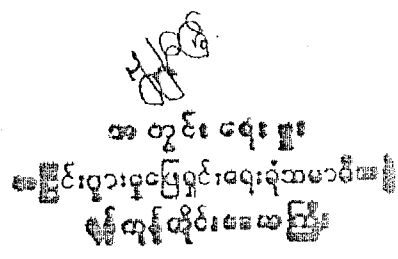 အတွင်းရေးမှူး
အငြင်းပွားမှုဖြေရှင်းရေးခုံသမာဓိအဖွဲ့
ရန်ကုန်တိုင်းဒေသကြီး